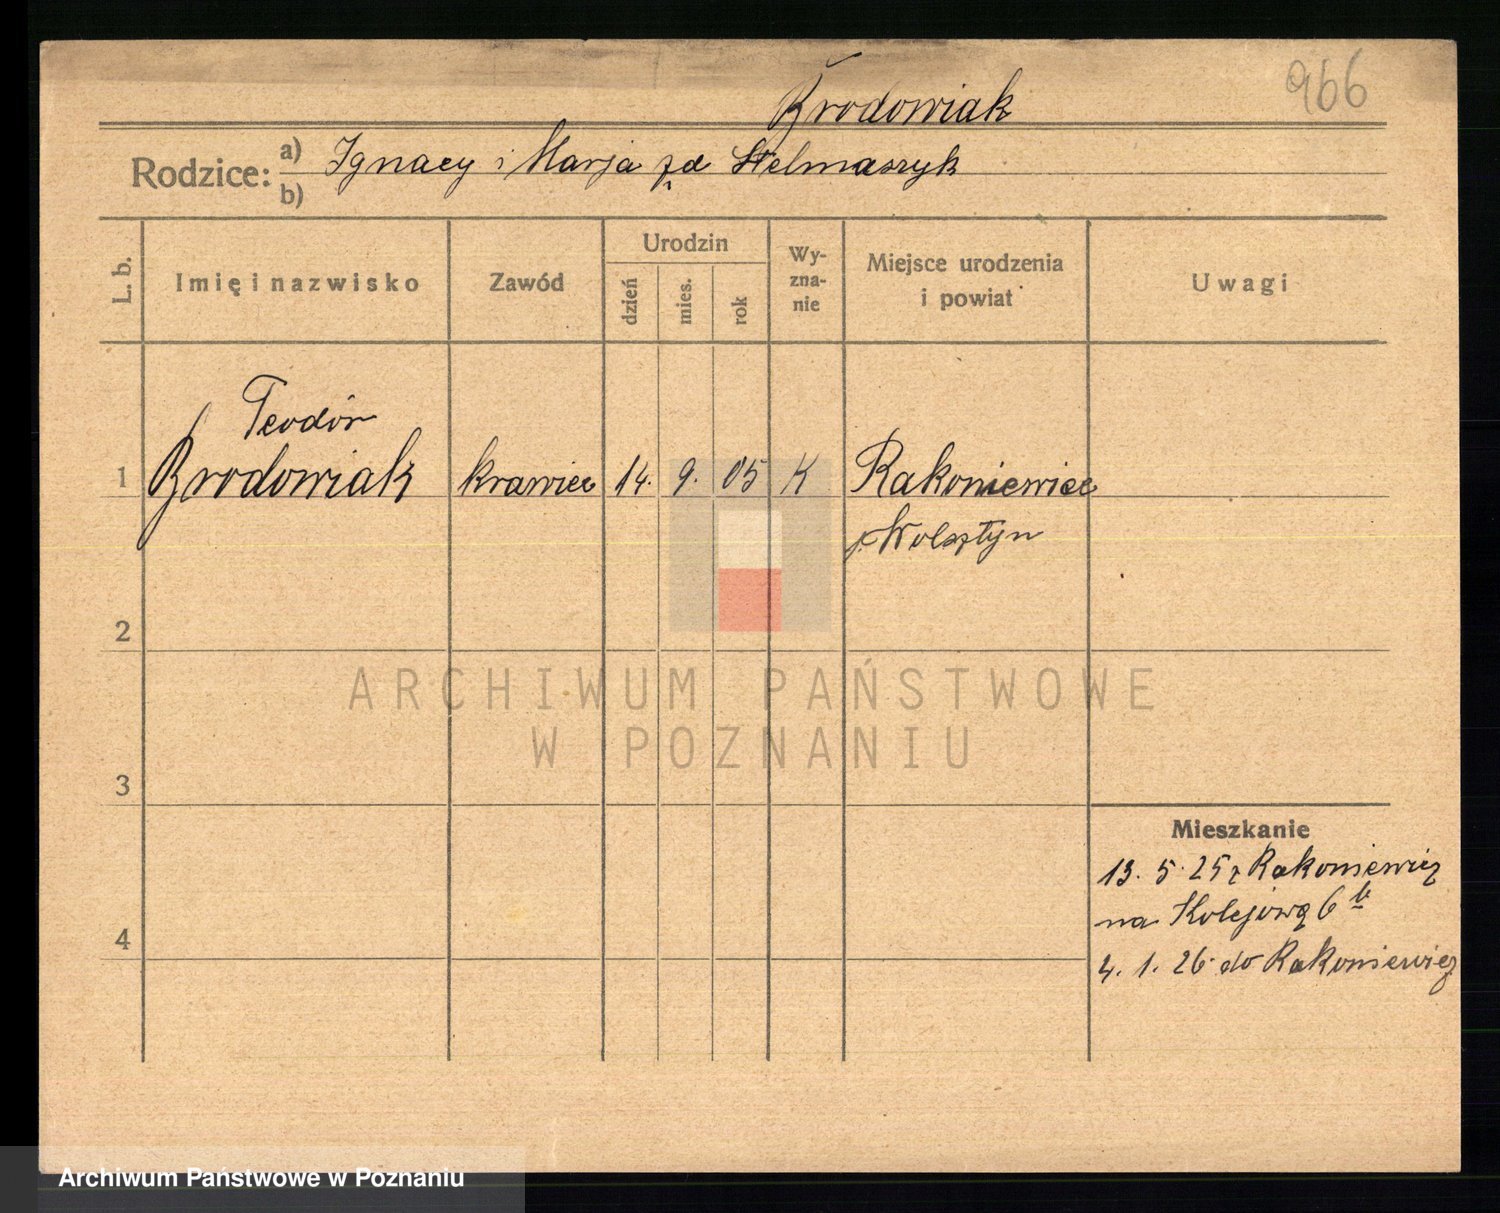 966
Brodowiak
Rodzice: a) Ignacy i Marja z d Stelmaszyk
b)
L. b.
Imię i nazwisko
Zawód
Urodzin
dzień
mies.
rok
Wy-
zna-
nie
Miejsce urodzenia
i powiat
Uwagi
Teodór
1 Brodowiak krawiec 14. 9. 05 K Rakoniewice
p. Wolsztyn
2
ARCHIWUM PAŃSTWOWE
W POZNANIU
3
Mieszkanie
13. 5. 25 z Rakoniewicz
na Kolejową 6 b
4
4. 1. 26 do Rakoniewicz
Archiwum Państwowe w Poznaniu